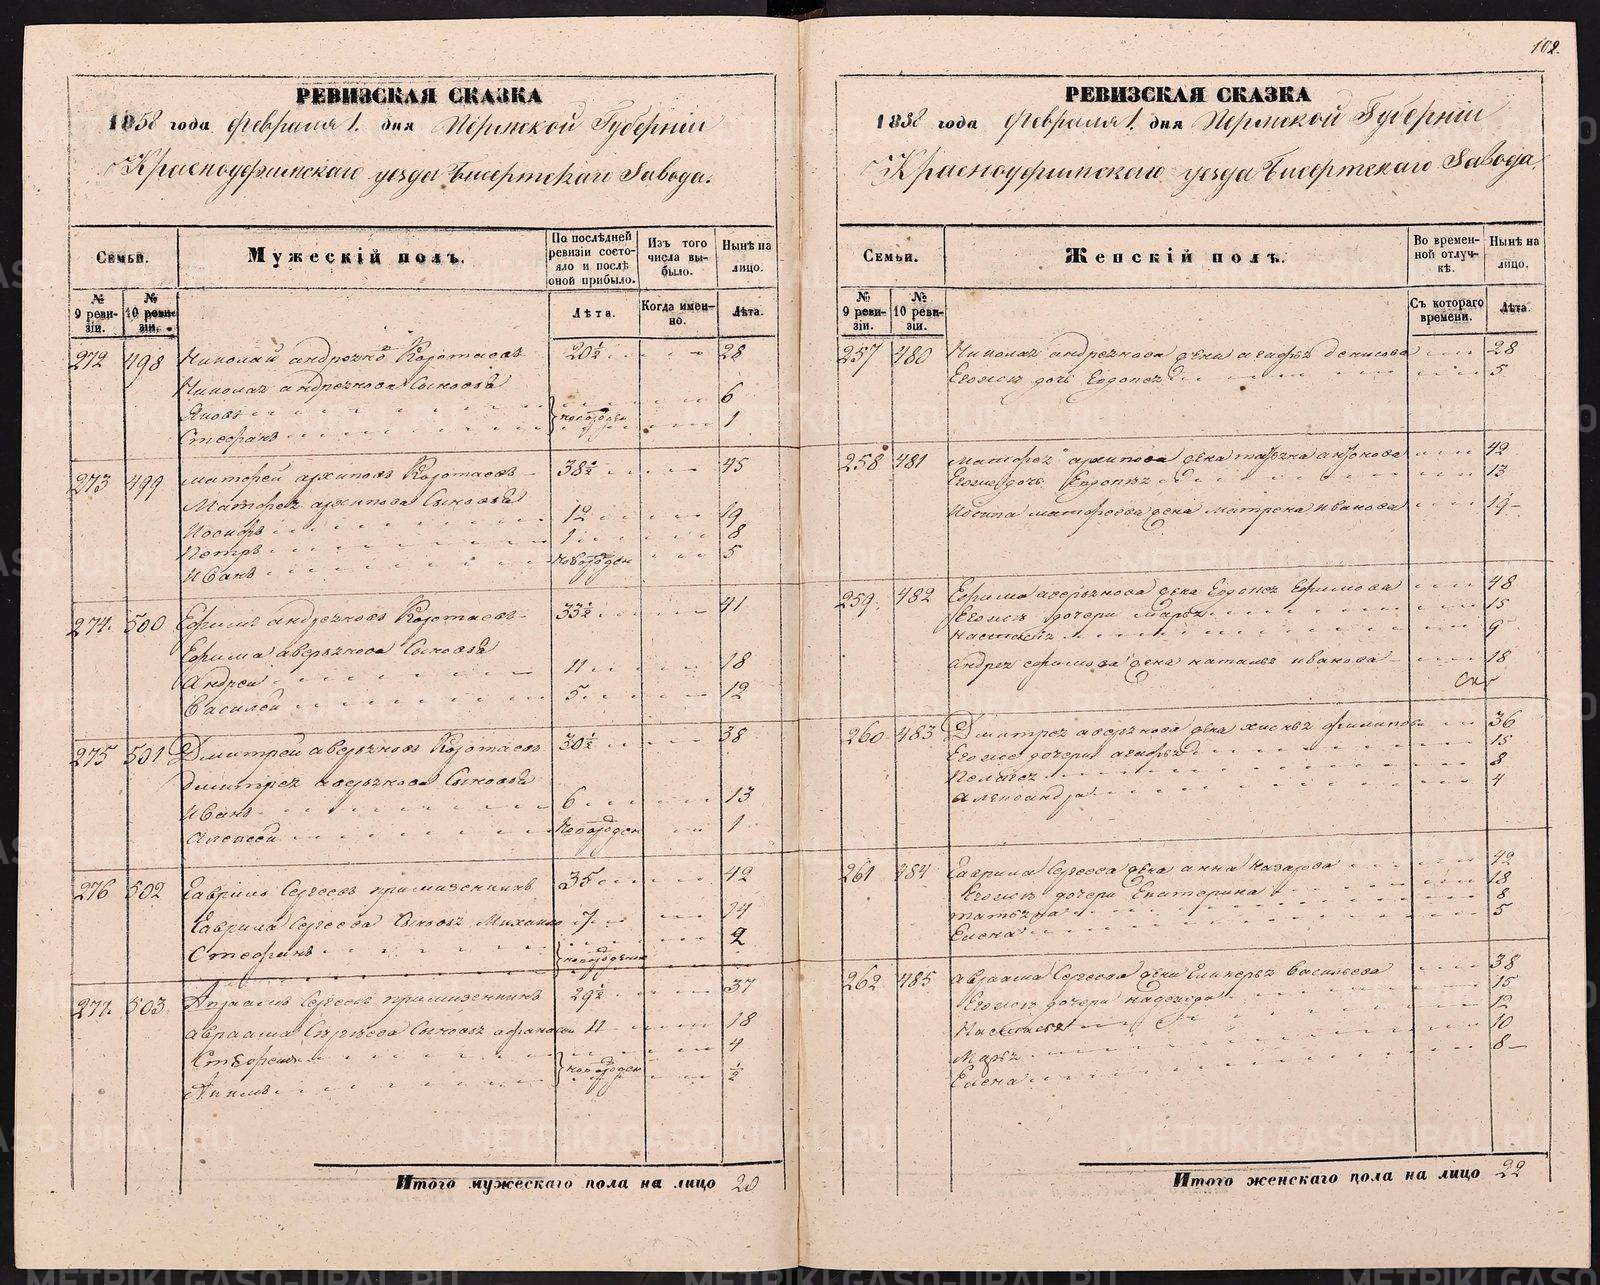 102.
РЕВИЗСКАЯ СКАЗКА
1858 года февраля 1. дня Пермской Губерніи
Красноуфимскаго уезда Бисертскаго Завода.
Семьи.
Мужескій полъ.
По послѣдней ревизіи состояло и послѣ оной прибыло.
Изъ того числа выбыло.
Нынѣ на лицо.
№ 9 ревизіи.
№ 10 ревизіи.
Лѣта.
Когда именно.
Лѣта.
272 498 Николай андреяновъ Коротаевъ 20½ 28
Николая андреянова Сыновья
Яковъ 6
Стефанъ новорожден 1
273 499 матфей архиповъ Коротаевъ 38½ 45
Матфея архипова Сыновья
Иосифъ 12 19
Петръ 1 8
Иванъ новорожден 5
274. 500 Ефимъ Коротаевъ 33½ 41
Ефима аверьянова Сыновья
Андрей 11 18
Василей 5 12
275 501 Дмитрей аверьяновъ Коротаевъ 30½ 38
Дмитрея аверьянова Сыновья
Иванъ 6 13
Алексей новорожден 1
276 502 Гаврило Сергеевъ 35 42
Гаврила Сергеева Сыновья Михайло 7 14
Стефанъ новорожденъ 2
277. 503. Сергеевъ 29½ 37
авраама Сергеева Сыновья афанасей 11 18
4
новорожден ½
Итого мужескаго пола на лицо 20
РЕВИЗСКАЯ СКАЗКА
1858 года февраля 1. дня Пермской Губерніи
Красноуфимскаго уезда Бисертскаго Завода.
Семьи.
Женскій полъ.
Во временной отлучкѣ.
Нынѣ на лицо.
№ 9 ревизіи.
№ 10 ревизіи.
Съ котораго времени.
Лѣта.
257 480 Николая андреянова жена агафья денисова 28
Егожъ дочь Евдокея 5
258 481 матфея архипова жена татьяна 42
Егоже дочь Евдокея 13
Иосифа матфеева жена матрена иванова 19
259. 482 Ефима аверьянова жена Евдокея Ефимова 48
Егожъ дочери марья 15
настасья 9
андрея ефимова жена наталья иванова 18
260 483 Дмитрея аверьянова жена филипова 36
Егоже дочери агафья 15
Пелагея 8
александра 4
261 484 Гаврила Сергеева жена анна назарова 42
Егожъ дочери Екатерина 18
татьяна 8
Елена 5
262 485 авраама Сергеева жена Васильева 38
Егожъ дочери надежда 15
Настасья 12
Марья 10
Елена 8
Итого женскаго пола на лицо 22